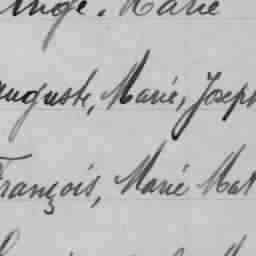 Ange, Marie
Auguste, Marie, Joseph
François, Marie Mat